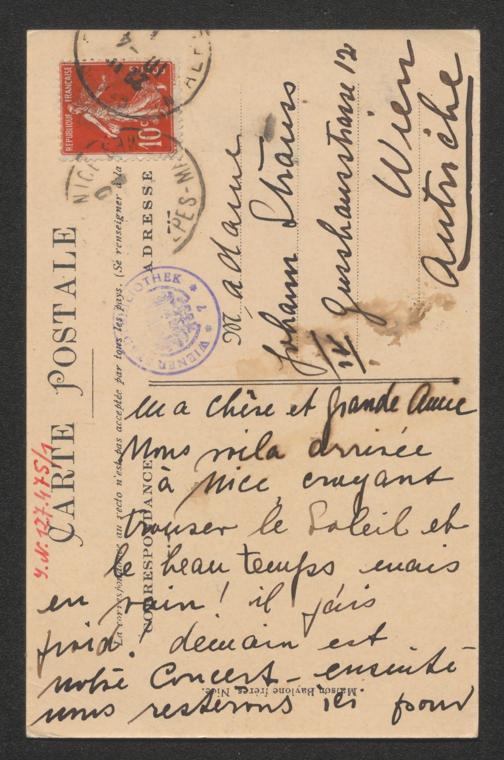 CARTE POSTALE
La correspondance au recto n'est pas acceptée par tous les pays. (Se renseigner à la
CORRESPONDANCE
ADRESSE
REPUBLIQUE FRANÇAISE
10c
NICE
PES-M
WIENER BIBLIOTHEK
J.N. 127.475/1
Madame
Johann Strauss
IV Gusshausstrasse 12
Wien
Autriche
Ma chère et grande Amie
Nous voila arrivée
à Nice, croyant
trouver le Soleil et
le beau temps mais
en vain! il fais
froid. demain est
notre Concert - ensuite
nous resterons ici pour
Maison Bavione frères, Nice.